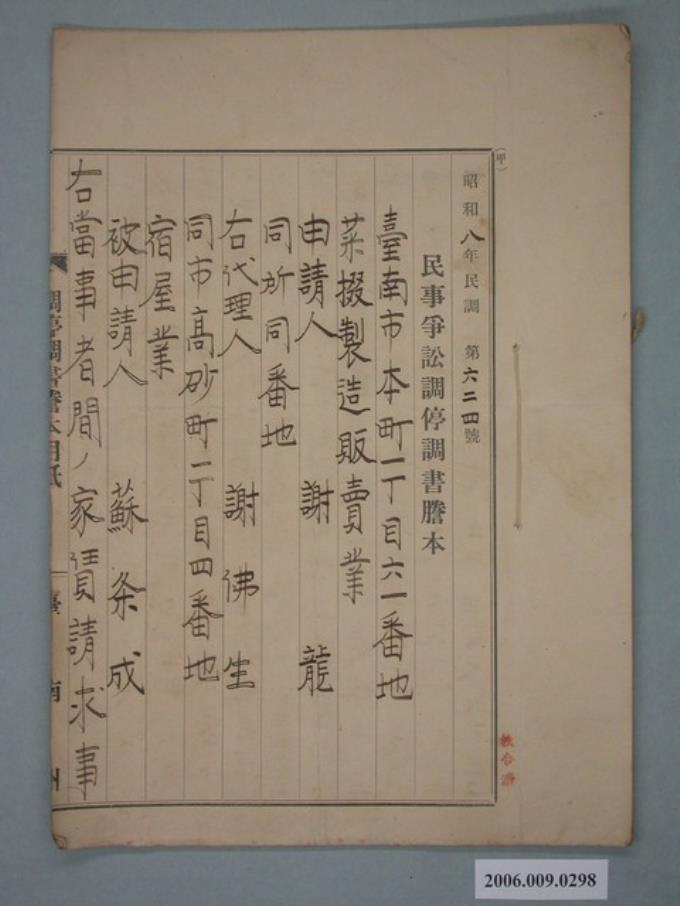 (甲)
昭和八年民調 第六二四號
民事爭訟調停調書謄本
臺南市本町一丁目六一番地
菜掇製造販賣業
申請人 謝 龍
同所同番地
右代理人 謝佛生
同市高砂町一丁目四番地
宿屋業
被申請人 蘇条成
右當事者間ノ家賃請求事
調停調書謄本用紙 臺南州
2006.009.0298